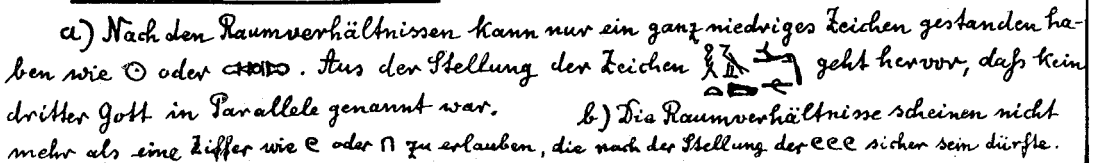 a) Nach den Raumverhältnissen kann nur ein ganz niedriges Zeichen gestanden ha-
ben wie oder . Aus der Stellung der Zeichen geht hervor, daß kein
dritter Gott in Parallele genannt war. b) Die Raumverhältnisse scheinen nicht
mehr als eine Ziffer wie oder zu erlauben, die nach der Stellung der sicher sein dürfte.